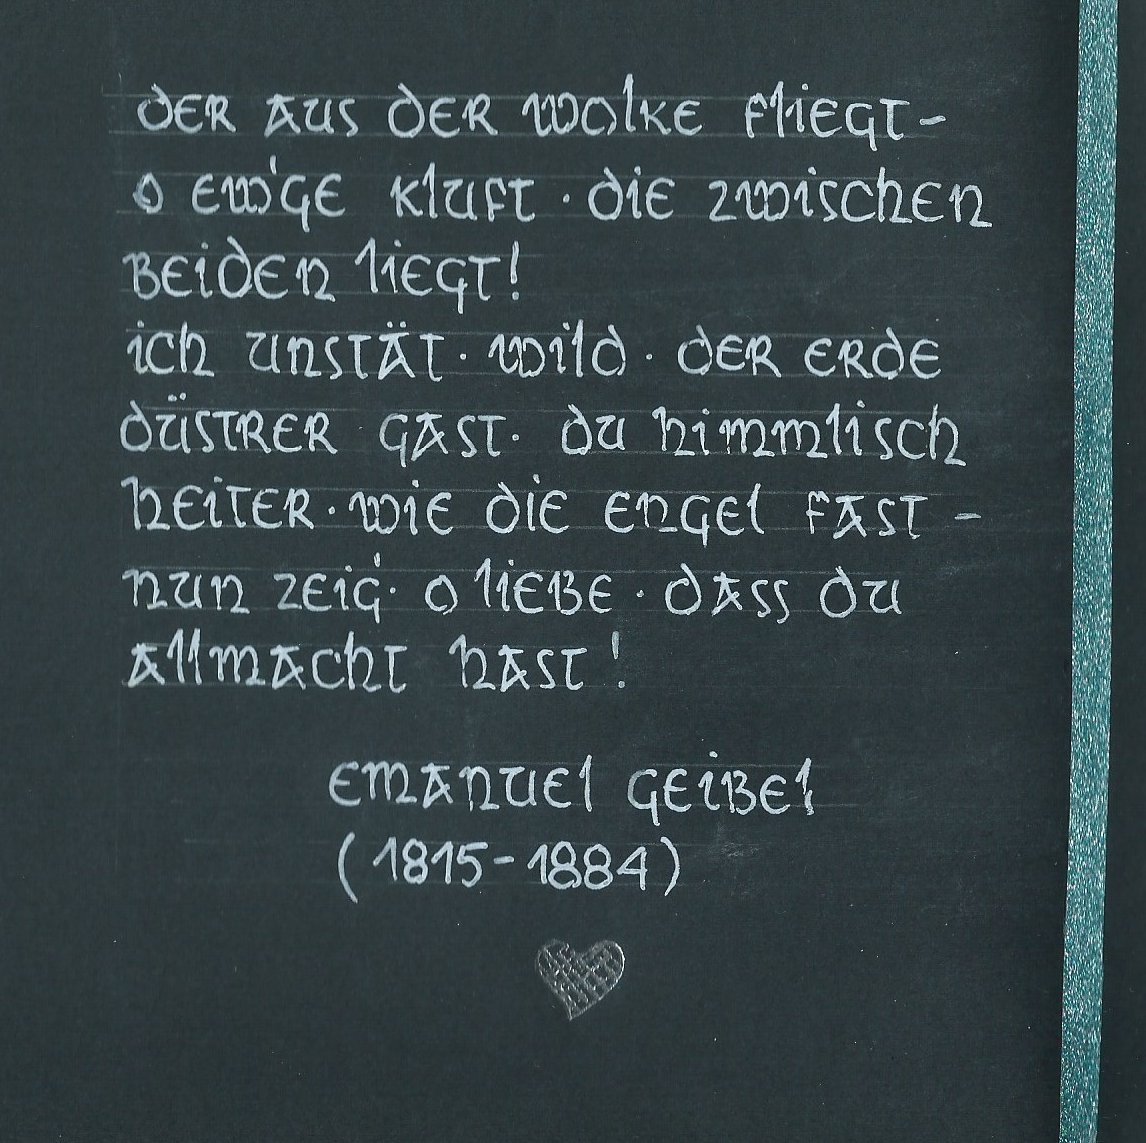 der aus der Wolke fliegt -
o ew'ge Kluft · die zwischen
beiden liegt!
ich unstät · wild · der Erde
düstrer Gast · du himmlisch
heiter · wie die Engel fast -
nun zeig' · o Liebe · dass du
Allmacht hast!
Emanuel Geibel
(1815-1884)